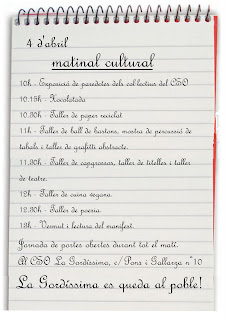 4 d'abril
matinal cultural
10h - Exposició de paradetes dels col·lectius del CSO
10.15h - Xocolatada
10.30h - Taller de paper reciclat
11h - Taller de ball de bastons, mostra de percussió de
tabals i taller de grafitti abstracte.
11.30h - Taller de capgrossos, taller de titelles i taller
de teatre.
12h - Taller de cuina vegana.
12.30h - Taller de poesia.
13h - Vermut i lectura del manifest.
Jornada de portes obertes durant tot el matí.
Al CSO La Gordíssima, c/ Pons i Gallarza nº10
La Gordíssima es queda al poble!